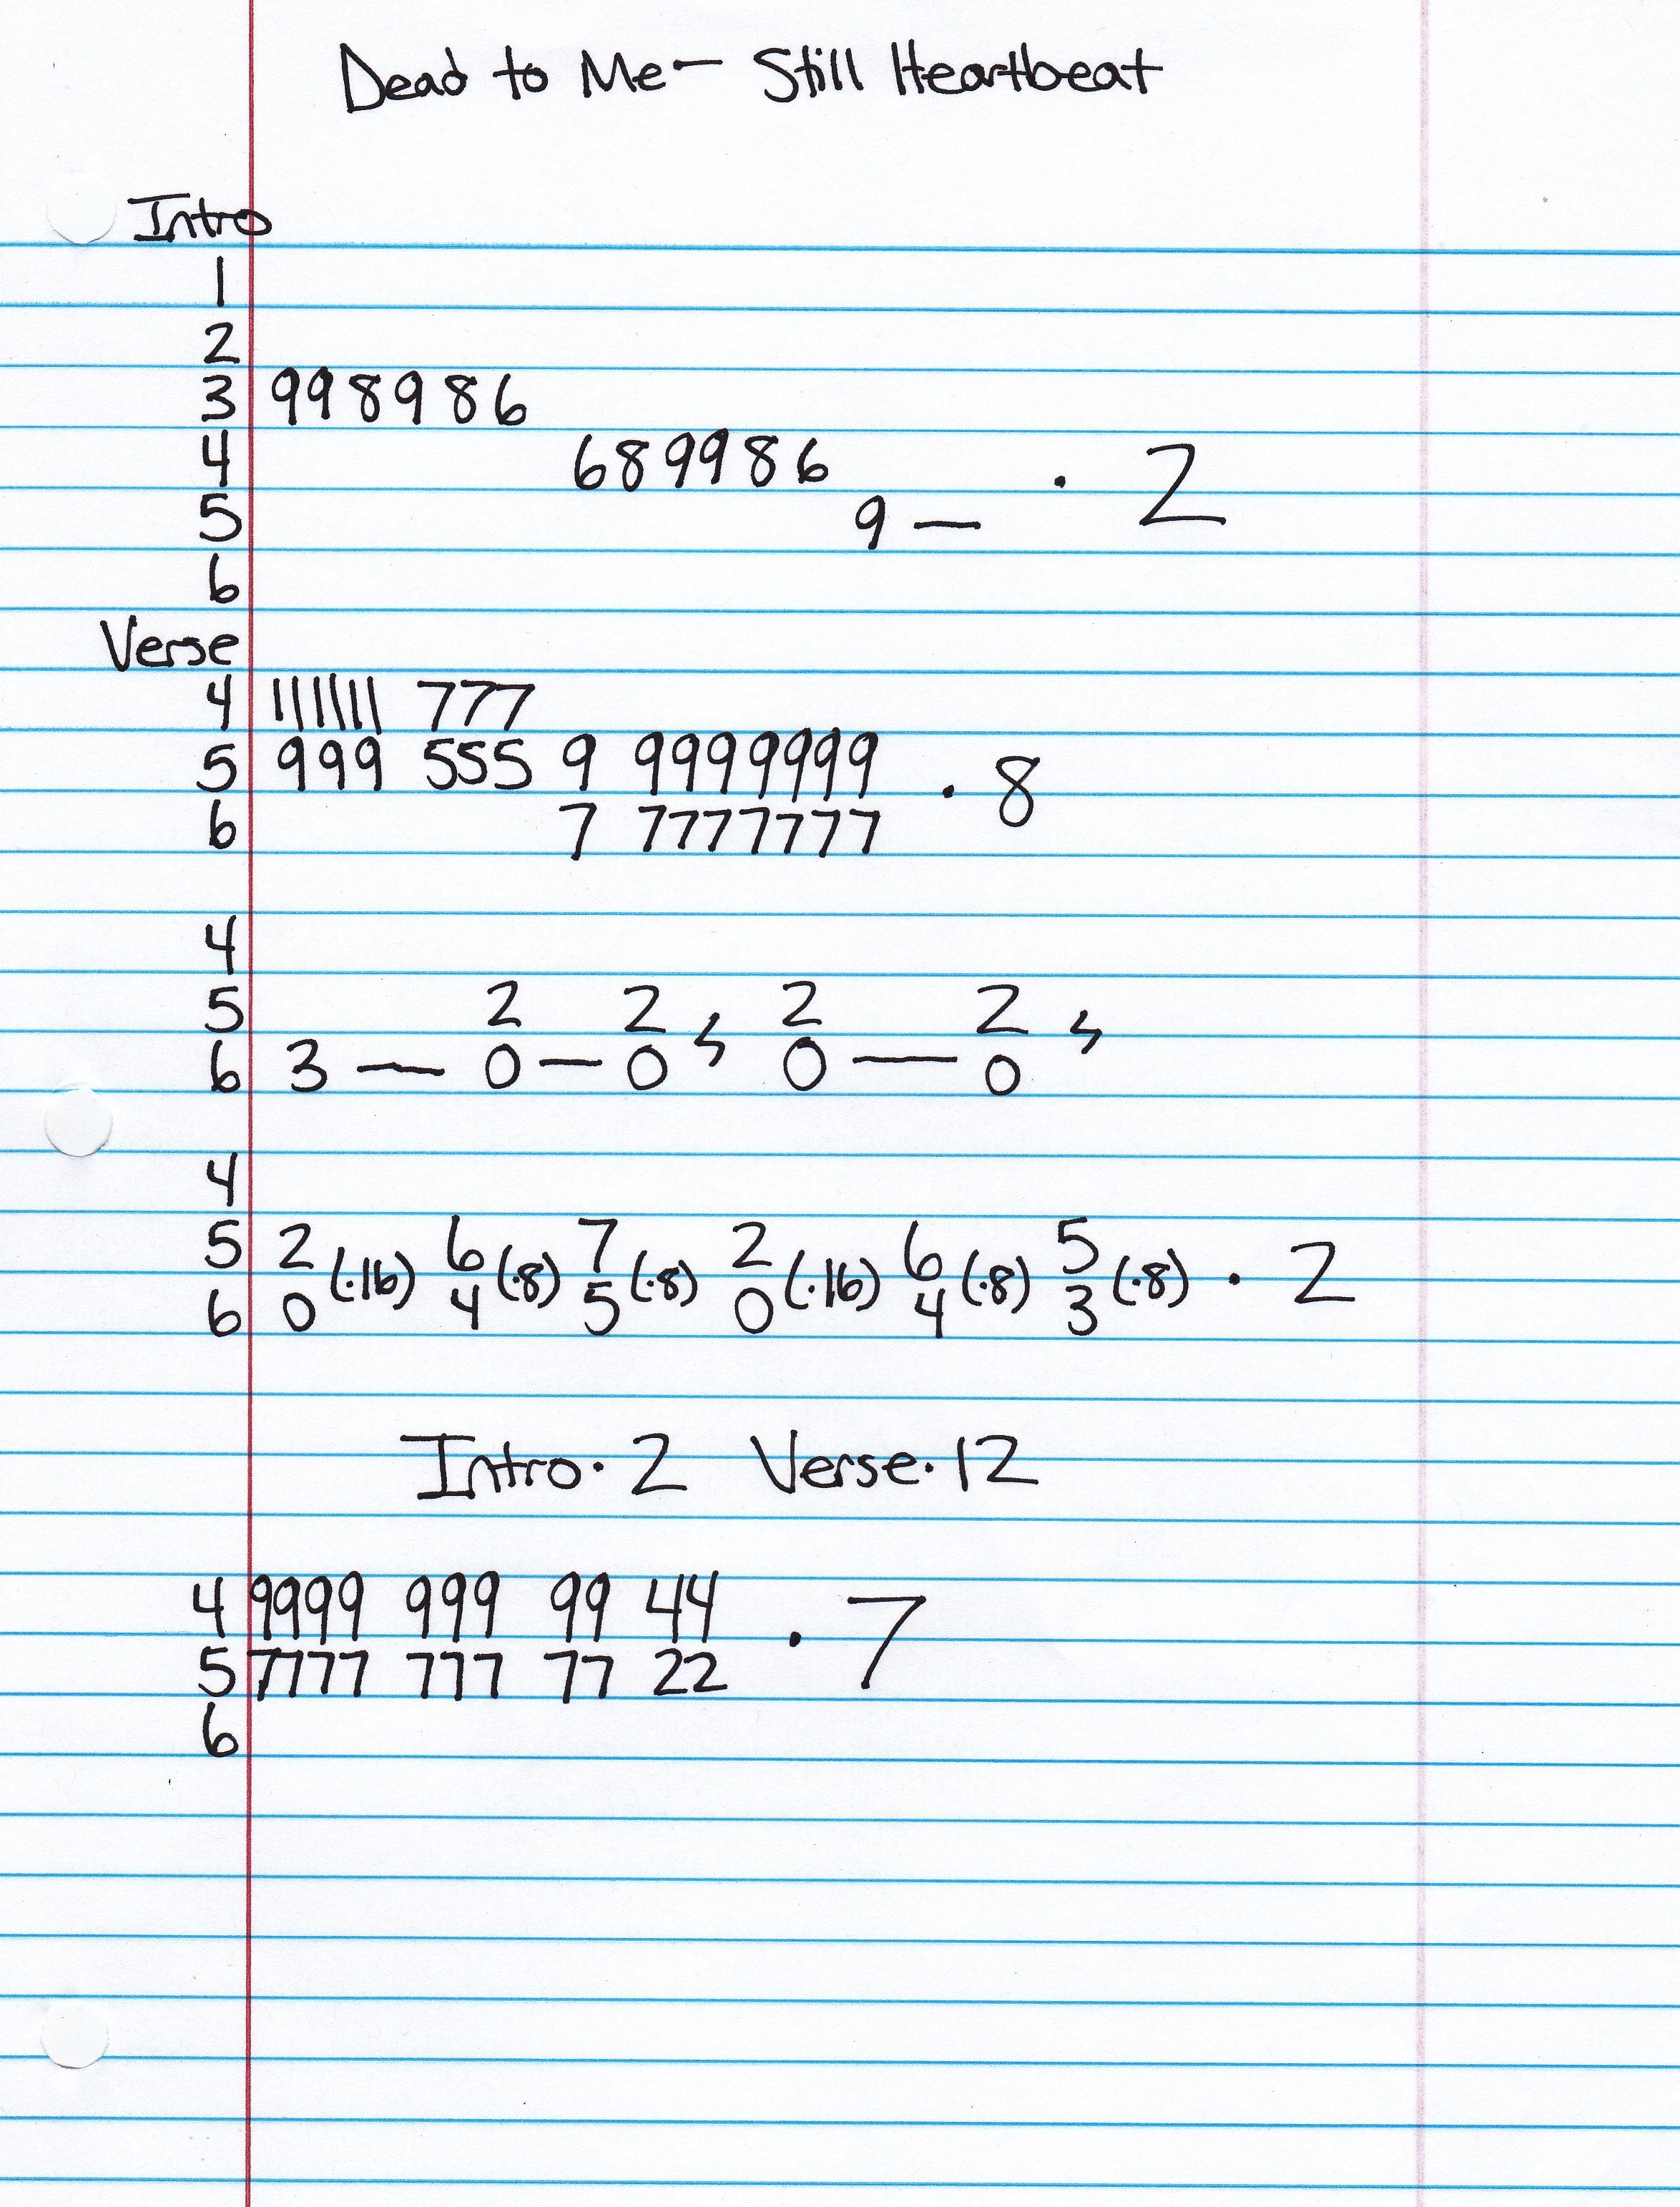 Dead to Me - Still Heartbeat
Intro
1
2
3 998986
4 689986
5 9 — · 2
6
Verse
4 111111 777
5 999 555 9 9999999 · 8
6 7 7777777
4
5 2 2 2 2
6 3 — 0 — 0 0 — 0
4
5 2 (·16) 6 (·8) 7 (·8) 2 (·16) 6 (·8) 5 (·8) · 2
6 0 4 5 0 4 3
Intro · 2 Verse · 12
4 9999 999 99 44 · 7
5 7777 777 77 22
6